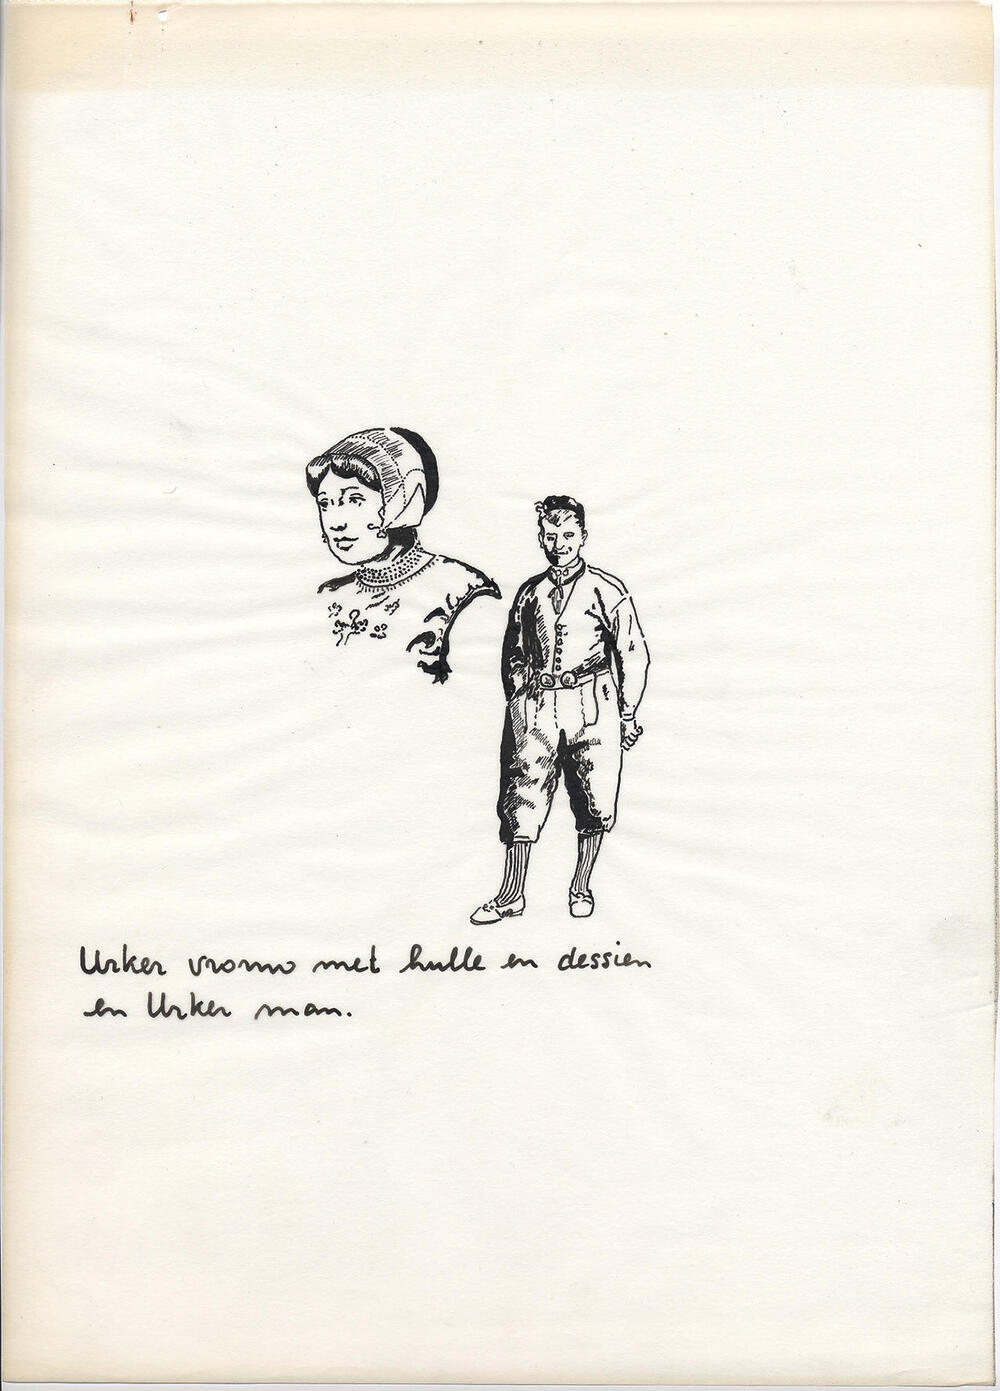 Urker vrouw met hulle en dessien
en Urker man.